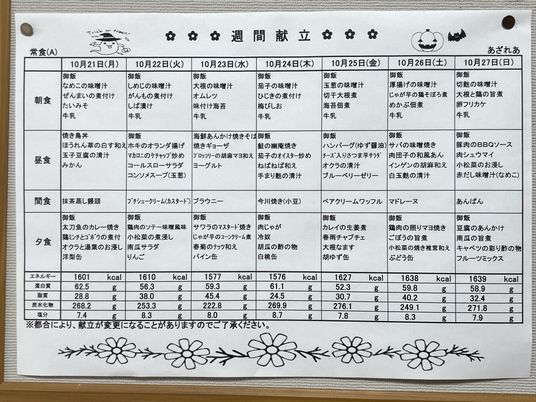 週間献立
常食(A)
あざれあ
10月21日(月) 10月22日(火) 10月23日(水) 10月24日(木) 10月25日(金) 10月26日(土) 10月27日(日)
朝食
御飯 御飯 御飯 御飯 御飯 御飯 御飯
なめこの味噌汁 しめじの味噌汁 大根の味噌汁 茄子の味噌汁 玉葱の味噌汁 厚揚げの味噌汁 切麩の味噌汁
ぜんまいの煮付け がんもの煮付け オムレツ ひじきの煮付 切干大根煮 じゃが芋の鶏そぼろ煮 大根と鶏の旨煮
たいみそ しば漬け 味付け海苔 梅びしお 海苔佃煮 めかぶ佃煮 卵フリカケ
牛乳 牛乳 牛乳 牛乳 牛乳 牛乳 牛乳
昼食
焼き鳥丼 御飯 海鮮あんかけ焼きそば 御飯 御飯 御飯 御飯
ほうれん草の白す和え ホキのオランダ揚げ 焼きギョーザ 鮭の幽庵焼き ハンバーグ(ゆず醤油) サバの味噌焼き 豚肉のBBQソース
玉子豆腐の清汁 マカロニのケチャップ炒め ブロッコリーの胡麻マヨ和え 茄子のオイスター炒め チーズ入りさつま芋サラダ 肉団子の和風あん 肉シュウマイ
みかん コールスローサラダ ヨーグルト ねばねば和え オクラの清汁 インゲンの胡麻和 小松菜のお浸し
コンソメスープ(玉葱) 手まり麩の清汁 ブルーベリーゼリー 白玉麩の清汁 赤だし味噌汁(なめこ)
間食 抹茶蒸し饅頭 プチシュークリーム(カスタード) ブラウニー 今川焼き(小豆) ペアクリームワッフル マドレーヌ あんぱん
夕食
御飯 御飯 御飯 御飯 御飯 御飯 御飯
太刀魚のカレー焼き 鶏肉のソテー味噌風味 サワラのマスタード焼き 肉じゃが カレイの生姜煮 鶏肉の照りマヨ焼き 豆腐のあんかけ
鶏ミンチとゴボウの煮付 小松菜の煮浸し じゃが芋のコーンクリーム煮 冷奴 春雨チャプチェ ごぼうの旨煮 南瓜の旨煮
オクラと湯葉のお浸し 南瓜サラダ 春菊のナッツ和え 胡瓜の酢の物 大根なます 小松菜の焼き椎茸和え キャベツの彩り酢の物
洋梨缶 りんご パイン缶 白桃缶 胡ゆず缶 ぶどう缶 フルーツミックス
エネルギー 1601 kcal 1610 kcal 1577 kcal 1576 kcal 1627 kcal 1638 kcal 1639 kcal
蛋白質 62.5 g 56.3 g 59.3 g 61.1 g 52.3 g 59.8 g 58.9 g
脂質 28.8 g 38.0 g 45.4 g 24.5 g 30.7 g 40.2 g 32.4 g
炭水化物 268.2 g 253.3 g 222.8 g 269.9 g 276.1 g 249.1 g 271.8 g
塩分 7.4 g 8.3 g 8.0 g 8.7 g 7.8 g 8.3 g 7.9 g
※都合により、献立が変更になることがありますのでご了承ください。